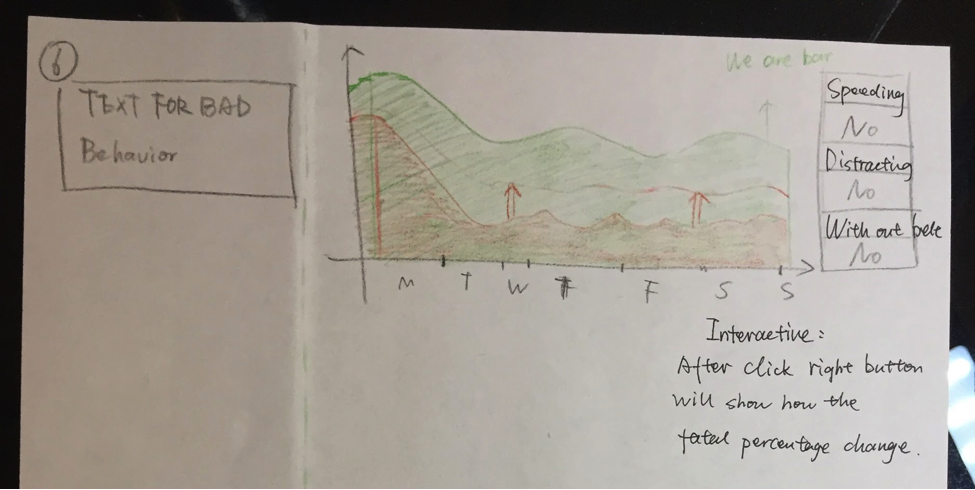 6
TEXT FOR BAD
Behavior
We are bar
Speeding
No
Distracting
No
With out belt
No
M T W T F S S
Interactive:
After click right button
will show how the
fatal percentage change.